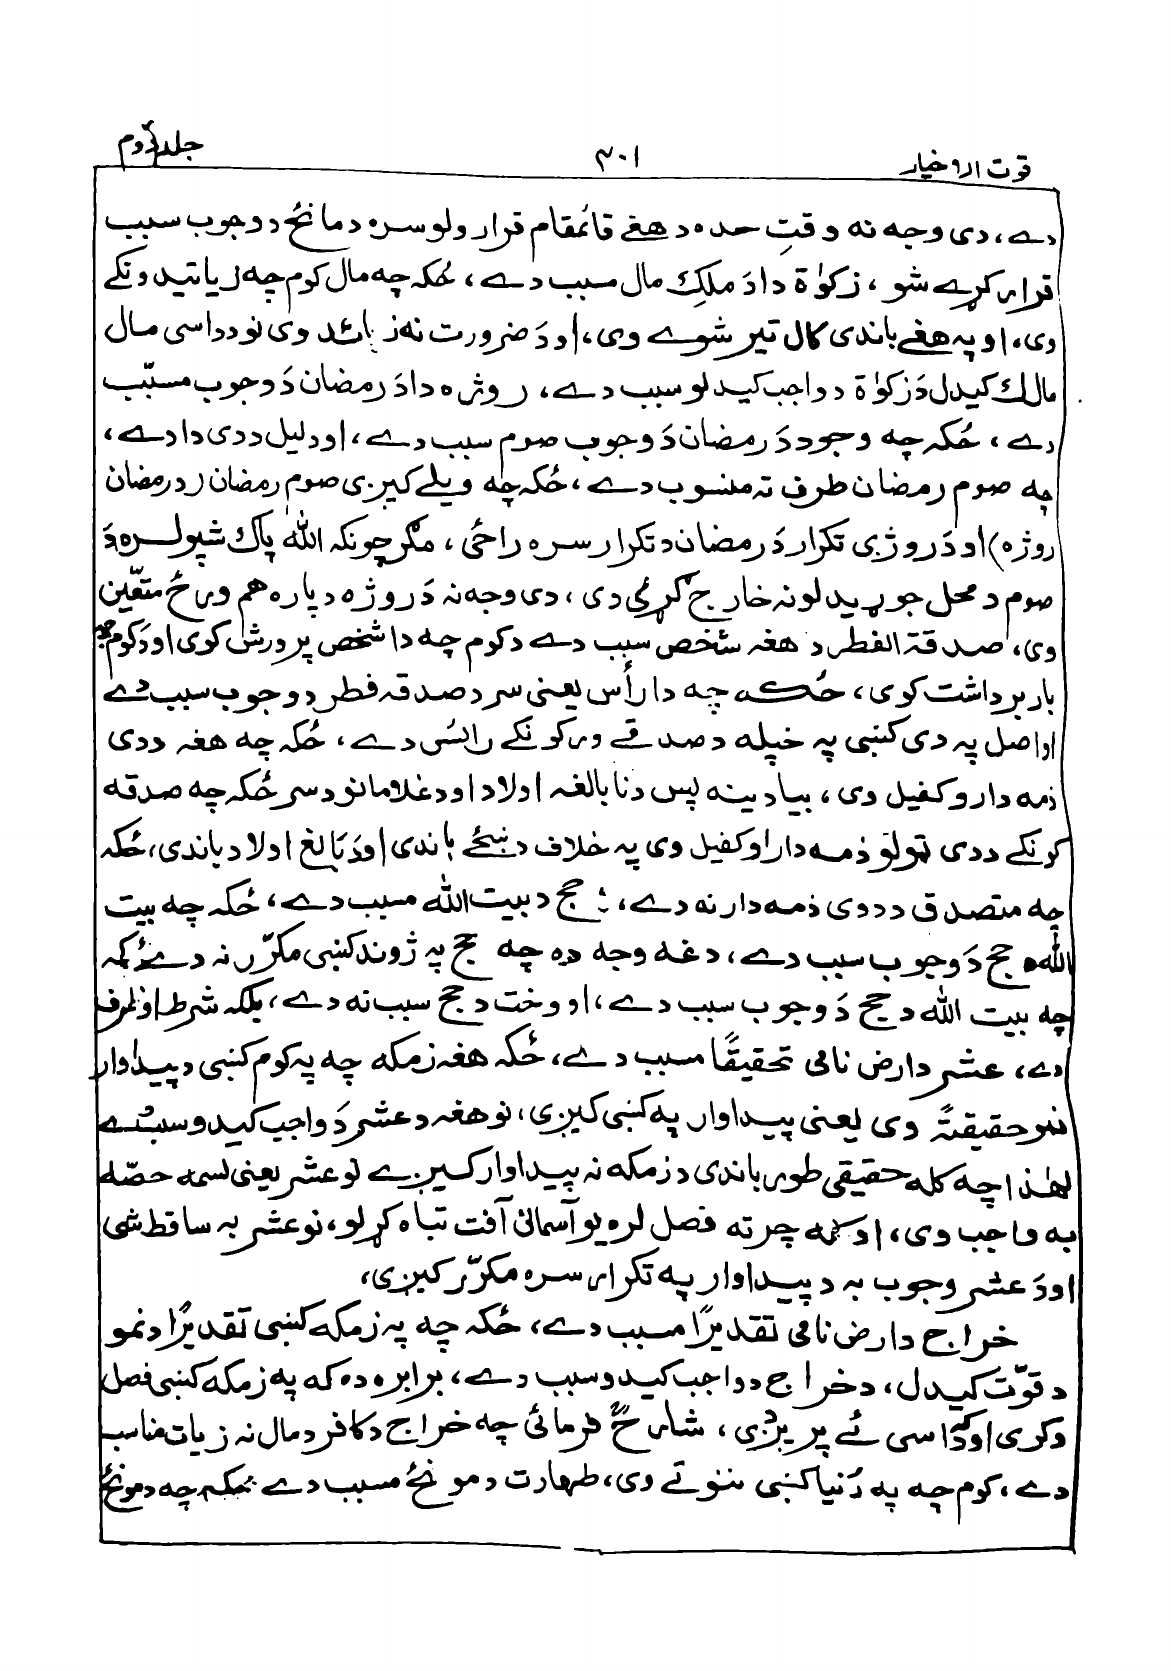 قوت الاخیار ۳۰۱ جلد دوم
دے، دی وجہ نہ وقتِ حدہ د ھغے قائمقام قرار ولو سرہ د مانځہ د وجوب سبب
قرار کړے شو، زکوٰۃ دا دَ مِلکِ مال مسبب دے، ځکہ چہ مال کوم چہ زیاتیدونکے
وی، او پہ ھغے باندی کال تیر شوے وی، او دَ ضرورت نہ زائد وی نو دداسی مال
مالک کیدل دَ زکوٰۃ د واجب کیدلو سبب دے، روژہ دا دَ رمضان دَ وجوب مسبّب
دے، ځکہ چہ وجود دَ رمضان دَ وجوب صوم سبب دے، او دلیل ددی دا دے،
چہ صوم رمضان طرف تہ منسوب دے، ځکہ چہ ویلے کیږی صوم رمضان (د رمضان
روژہ) او دَ روژی تکرار دَ رمضان د تکرار سرہ راځی، مگر چونکہ اللہ پاک شپو لرہ دَ
صوم د محل جوړیدلو نہ خارج کړئی دی، دی وجہ نہ دَ روژہ د پارہ ھم ورځ متعّین
وی، صدقۃ الفطر د ھغہ شخص سبب دے د کوم چہ دا شخص پرورش کوی او دَ کوم چہ
بار برداشت کوی، ځکہ چہ دا رأس یعنی سر د صدقہ فطر د وجوب سبب دے
او اصل پہ دی کښی پہ خپلہ د صدقے ورکونکے رائس دے، ځکہ چہ ھغہ ددی
ذمہ دار و کفیل وی، بیا دینہ پس د نابالغہ اولاد او د غلامانو د سر ځکہ چہ صدقہ
کونکے ددی ټولو ذمہ دار او کفیل وی پہ خلاف د ښځے باندی او دَ بالغ اولاد باندی، ځکہ
چہ متصدق د دوی ذمہ دار نہ دے، حج د بیت اللہ مسبب دے، ځکہ چہ بیت
اللہ د حج دَ وجوب سبب دے، دغہ وجہ دہ چہ حج پہ ژوند کښی مکرّر نہ دے ځکہ
چہ بیت اللہ د حج دَ وجوب سبب دے، او وخت د حج سبب نہ دے، بلکہ شرط او ظرف
دے، عشر د ارض نامی تحقیقًا مسبب دے، ځکہ ھغہ زمکہ چہ پہ کوم کښی د پیداوار
نمو حقیقتہً وی یعنی پیداوار پہ کښی کیږی، نو ھغہ د عشر دَ واجب کیدو سبب دے
لھٰذا چہ کلہ حقیقی طور باندی د زمکہ نہ پیداوار کیږے نو عشر یعنی لسمہ حصّہ
بہ واجب وی، او کہ چرتہ فصل لرہ یو آسمانی آفت تباہ کړلو، نو عشر بہ ساقط شی
او دَ عشر وجوب بہ د پیداوار پہ تکرار سرہ مکرّر کیږی،
خراج د ارض نامی تقدیرًا مسبب دے، ځکہ چہ پہ زمکہ کښی تقدیرًا د نمو
د قوّت کیدل، د خراج د واجب کیدو سبب دے، برابرہ دہ کہ پہ زمکہ کښی فصل
وکری او کہ داسی ئے پریږدی، شارحؒ فرمائی چہ خراج د کافر د مال نہ زیات مناسب
دے، کوم چہ پہ دُنیا کښی ننوتے وی، طھارت د مونځ مسبب دے ځکہ چہ د مونځ